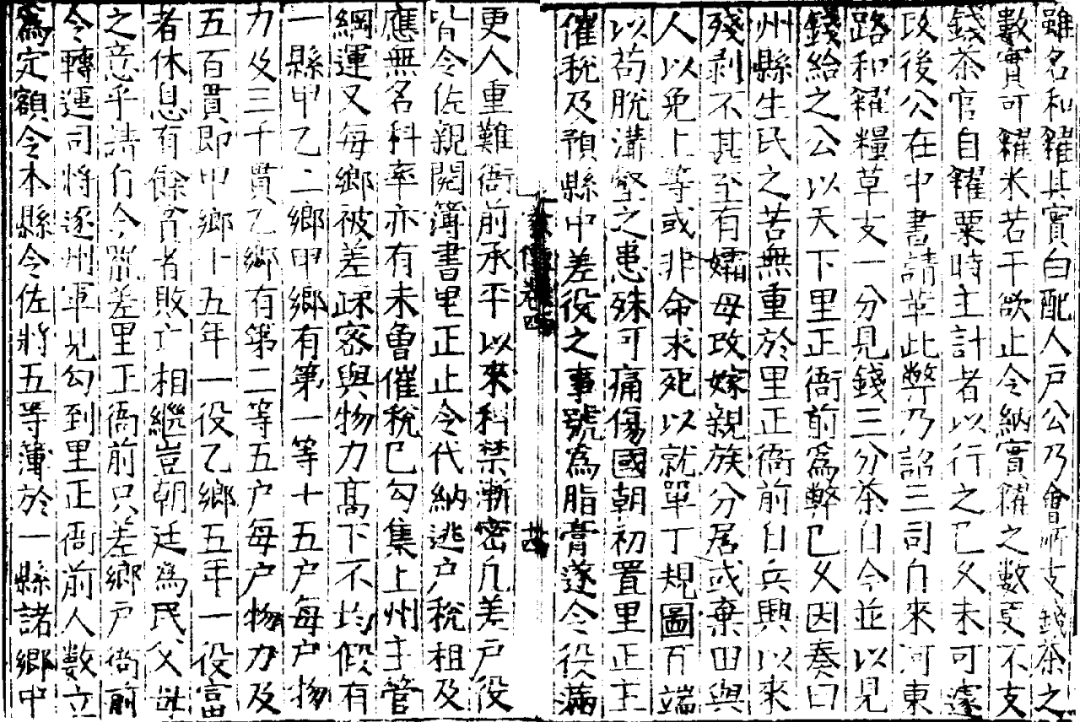 雖名和糴其實白配人戶公乃會所支錢茶之
數實可糴米若干欲止令納實糴之數更不支
錢茶官自糴粟時主計者以行之已久未可遽
改後公在中書請革此弊乃詔三司自來河東
路和糴糧草支一分見錢三分茶自今並以見
錢給之公以天下里正衙前為弊已久因奏曰
州縣生民之苦無重於里正衙前自兵興以來
殘剥不甚至有孀母改嫁親族分居或棄田與
人以免上等或非命求死以就單丁規圖百端
以苟脫溝壑之患殊可痛傷國朝初置里正主
催稅及預縣中差役之事號為脂膏遂令役滿
更入重難衙前承平以來科禁漸密凡差戶役
皆令佐親閱簿書里正止令代納逃戶稅租及
應無名科率亦有未曾催稅已勾集上州主管
綱運又每鄉被差疎密與物力高下不均假有
一縣甲乙二鄉甲鄉有第一等十五戶每戶物
力及三千貫乙鄉有第二等五戶每戶物力及
五百貫即甲鄉十五年一役乙鄉五年一役富
者休息有餘貧者敗亡相繼豈朝廷為民父母
之意乎請自今罷差里正衙前只差鄉戶衙前
令轉運司將逐州軍見勾到里正衙前人數立
為定額令本縣令佐將五等簿於一縣諸鄉中